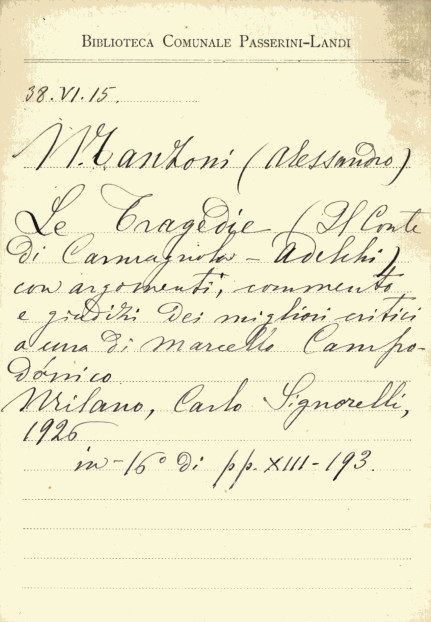 BIBLIOTECA COMUNALE PASSERINI-LANDI
38.VI.15.
Manzoni (Alessandro)
Le Tragedie (Il Conte
di Carmagnola - Adelchi)
con argomenti, commento
e giudizi dei migliori critici
a cura di Marcello Campo-
dónico
Milano, Carlo Signorelli,
1926
in-16° di pp. XIII-193.